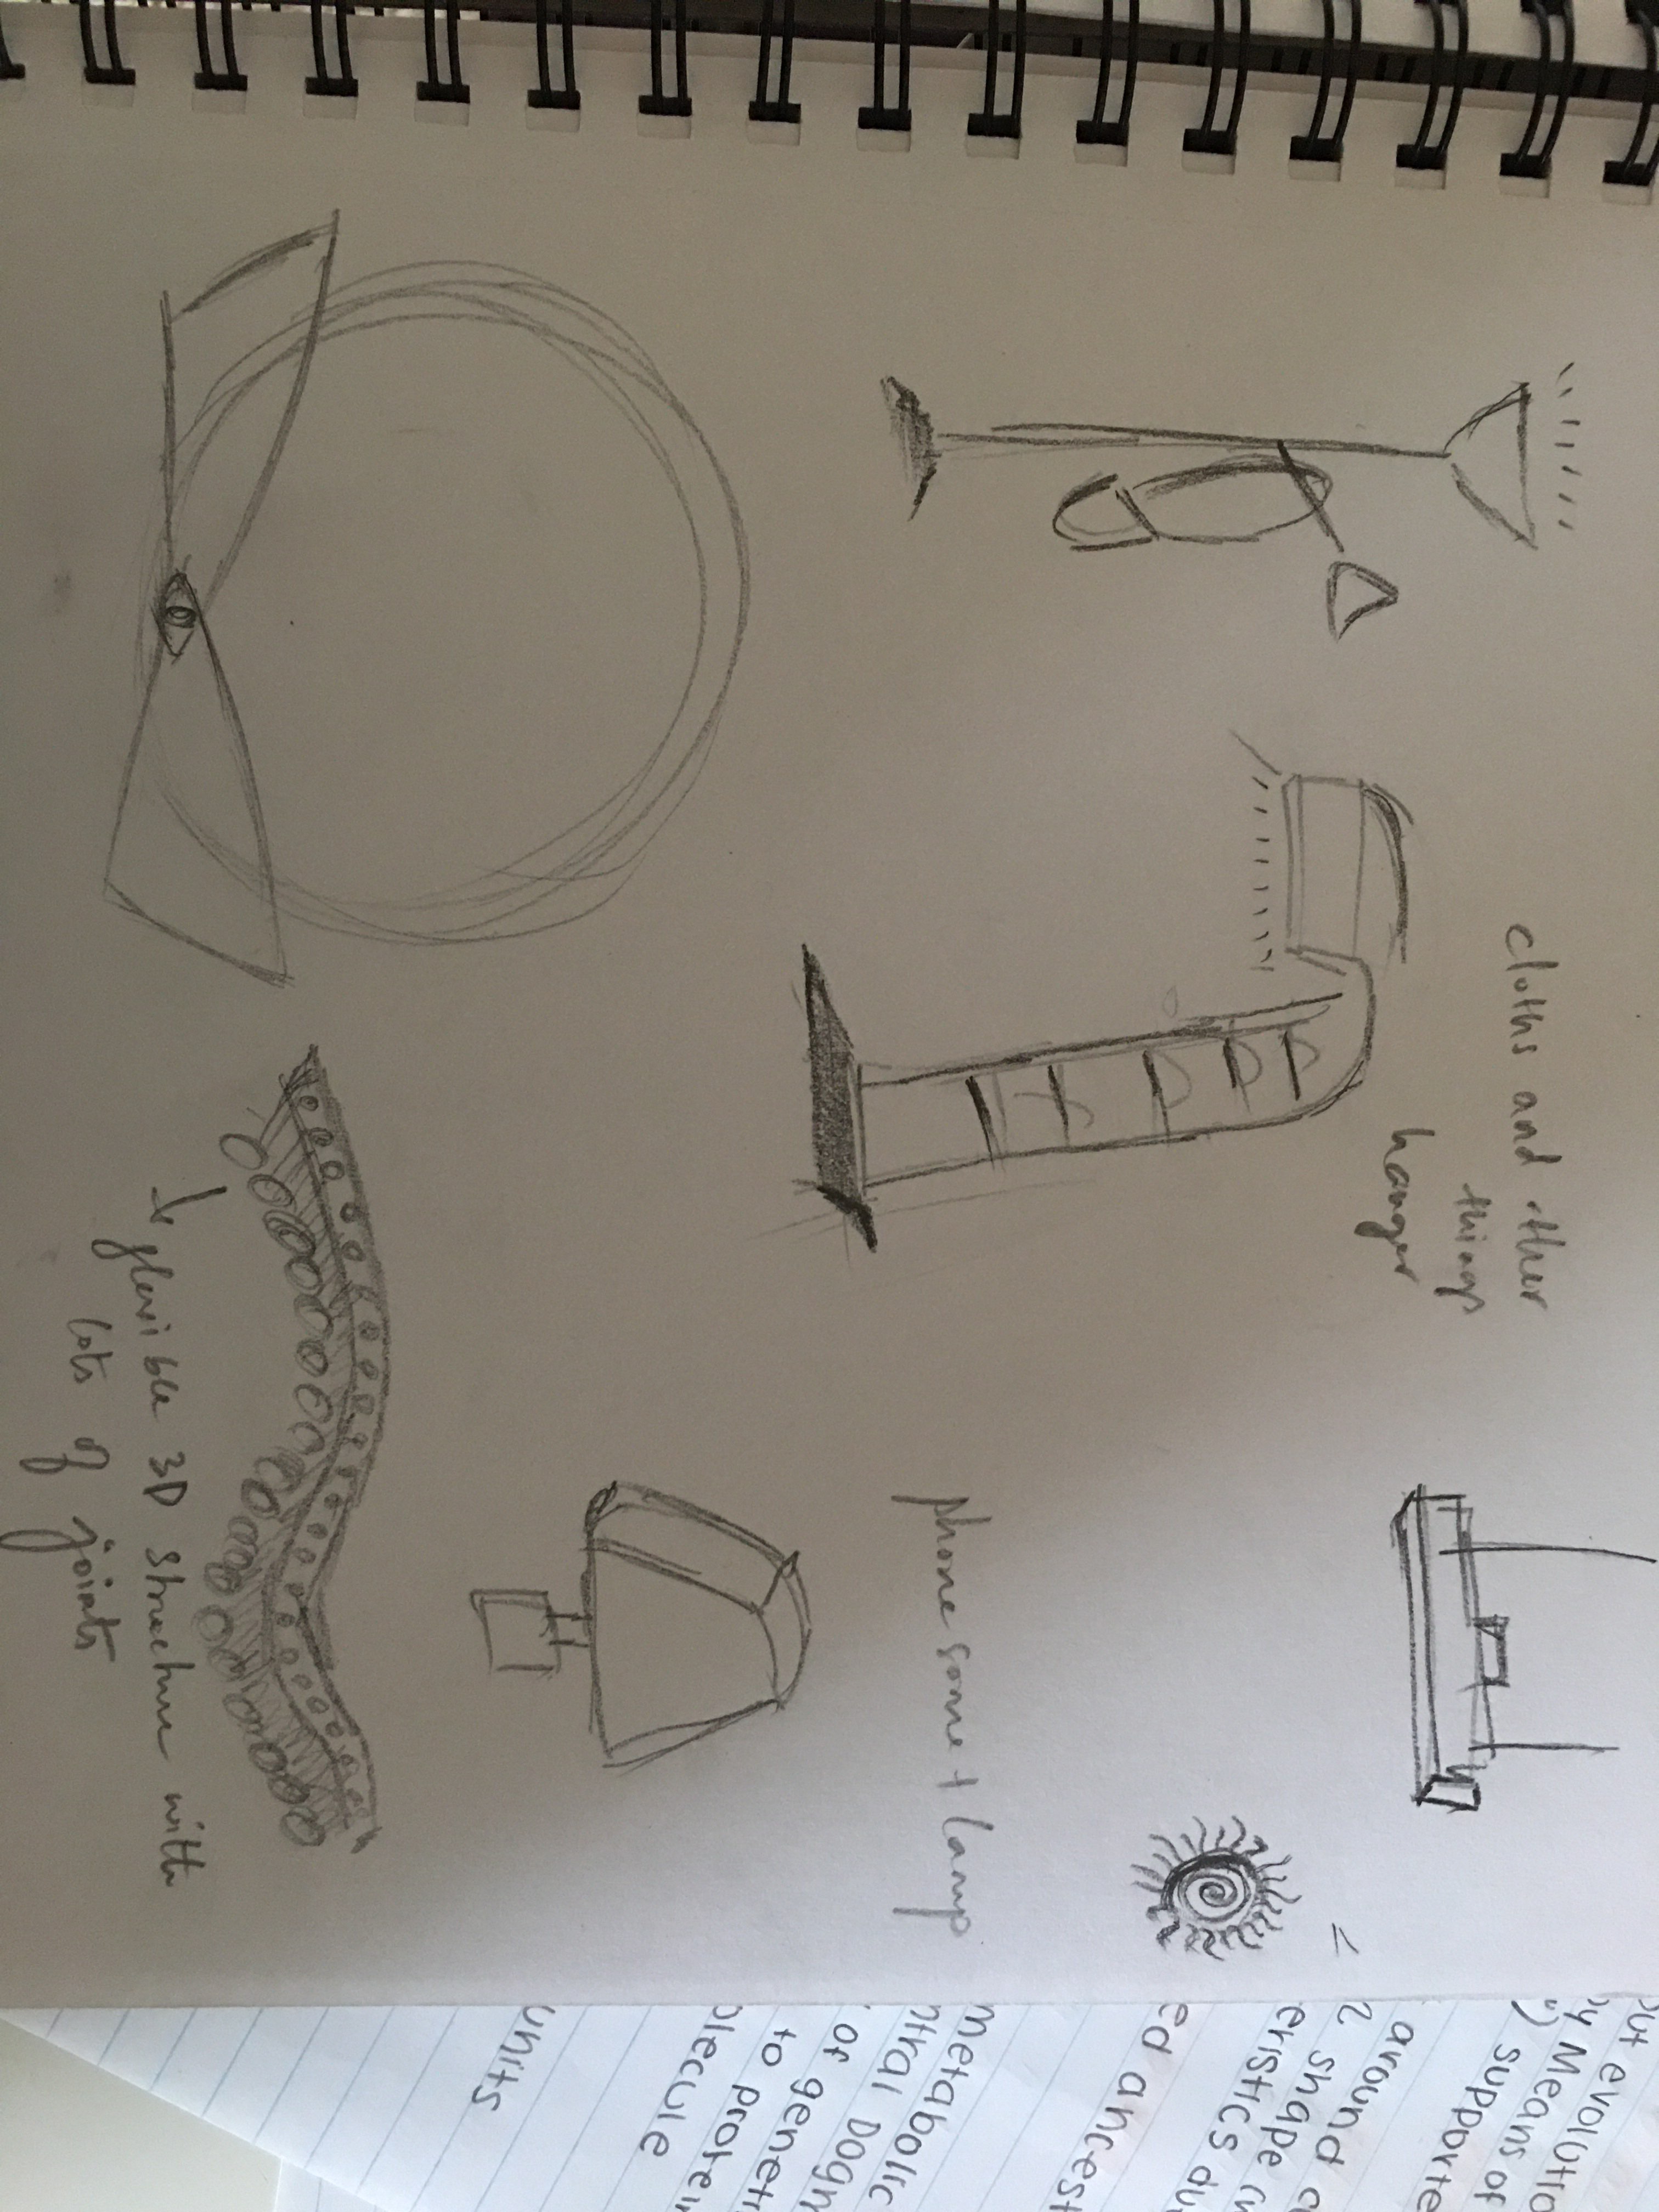 cloths and other
things
hanger
phone some + lamp
flexible 3D structure with
lots of joints
but evolutio
by Means of
") supporte
around a
2 shape (w
eristics du
ed ancest
metabolic
ntral Dogm
or geneti
to protein
olecule
units